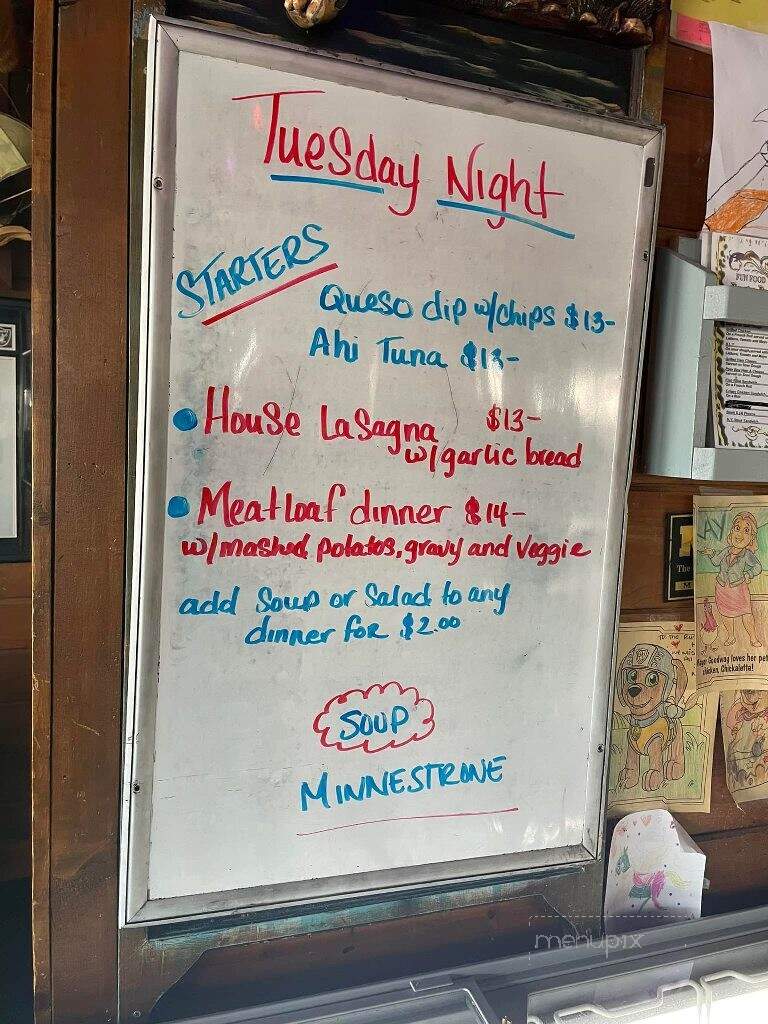 Tuesday Night
STARTERS
Queso dip w/chips $13-
Ahi Tuna $13-
House Lasagna $13-
w/garlic bread
Meatloaf dinner $14-
w/mashed potatos, gravy and Veggie
add Soup or Salad to any
dinner for $2.00
SOUP
MINNESTRONE
FUN FOOD
The
Goodway loves her pet
chicken, Chickaletta!
menupix